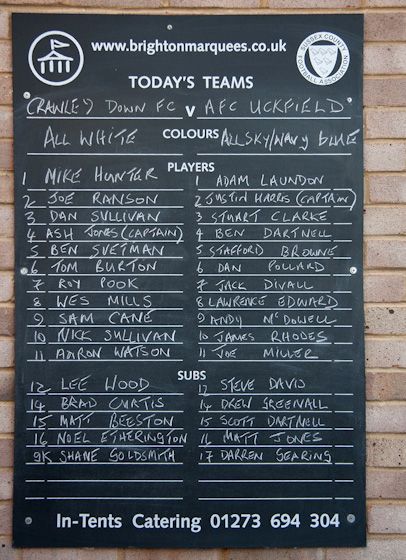 www.brightonmarquees.co.uk
SUSSEX COUNTY FOOTBALL ASSOCIATION
TODAY'S TEAMS
CRAWLEY DOWN FC v AFC UCKFIELD
ALL WHITE COLOURS ALL SKY/NAVY BLUE
PLAYERS
1 MIKE HUNTER 1 ADAM LAUNDON
2 JOE RANSON 2 JUSTIN HARRIS (CAPTAIN)
3 DAN SULLIVAN 3 STUART CLARKE
4 ASH JONES (CAPTAIN) 4 BEN DARTNELL
5 BEN SVETMAN 5 STAFFORD BROWNE
6 TOM BURTON 6 DAN POLLARD
7 ROY POOK 7 JACK DIVALL
8 WES MILLS 8 LAWRENCE EDWARD
9 SAM CANE 9 ANDY McDOWELL
10 NICK SULLIVAN 10 JAMES RHODES
11 AARON WATSON 11 JOE MILLER
SUBS
12 LEE WOOD 12 STEVE DAVIS
14 BRAD CURTIS 14 DREW GREENALL
15 MATT BEESTON 15 SCOTT DARTNELL
16 NOEL ETHERINGTON 16 MATT JONES
GK SHANE GOLDSMITH 17 DARREN GEARING
In-Tents Catering 01273 694 304